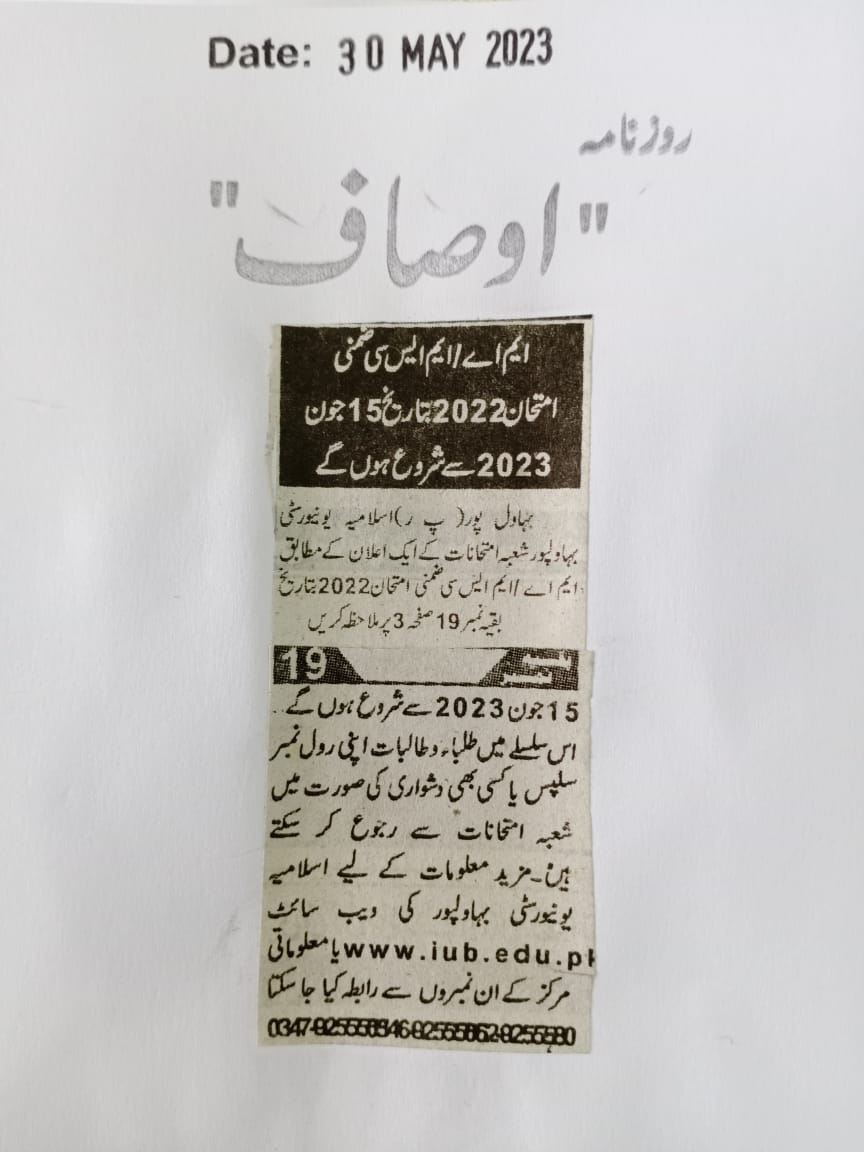 Date: 30 MAY 2023
روزنامہ
"اوصاف"
ایم اے/ایم ایس سی ضمنی
امتحان 2022 بتاریخ 15 جون
2023 سے شروع ہوں گے
بہاول پور( پ ر)اسلامیہ یونیورسٹی
بہاولپور شعبہ امتحانات کے ایک اعلان کے مطابق
ایم اے /ایم ایس سی ضمنی امتحان 2022 بتاریخ
بقیہ نمبر 19 صفحہ 3 پر ملاحظہ کریں
بقیہ نمبر 19
15 جون 2023 سے شروع ہوں گے۔
اس سلسلے میں طلباء وطالبات اپنی رول نمبر
سلپس یا کسی بھی دشواری کی صورت میں
شعبہ امتحانات سے رجوع کر سکتے
ہیں۔مزید معلومات کے لیے اسلامیہ
یونیورسٹی بہاولپور کی ویب سائٹ
www.iub.edu.pk یا معلوماتی
مرکز کے ان نمبروں سے رابطہ کیا جا سکتا